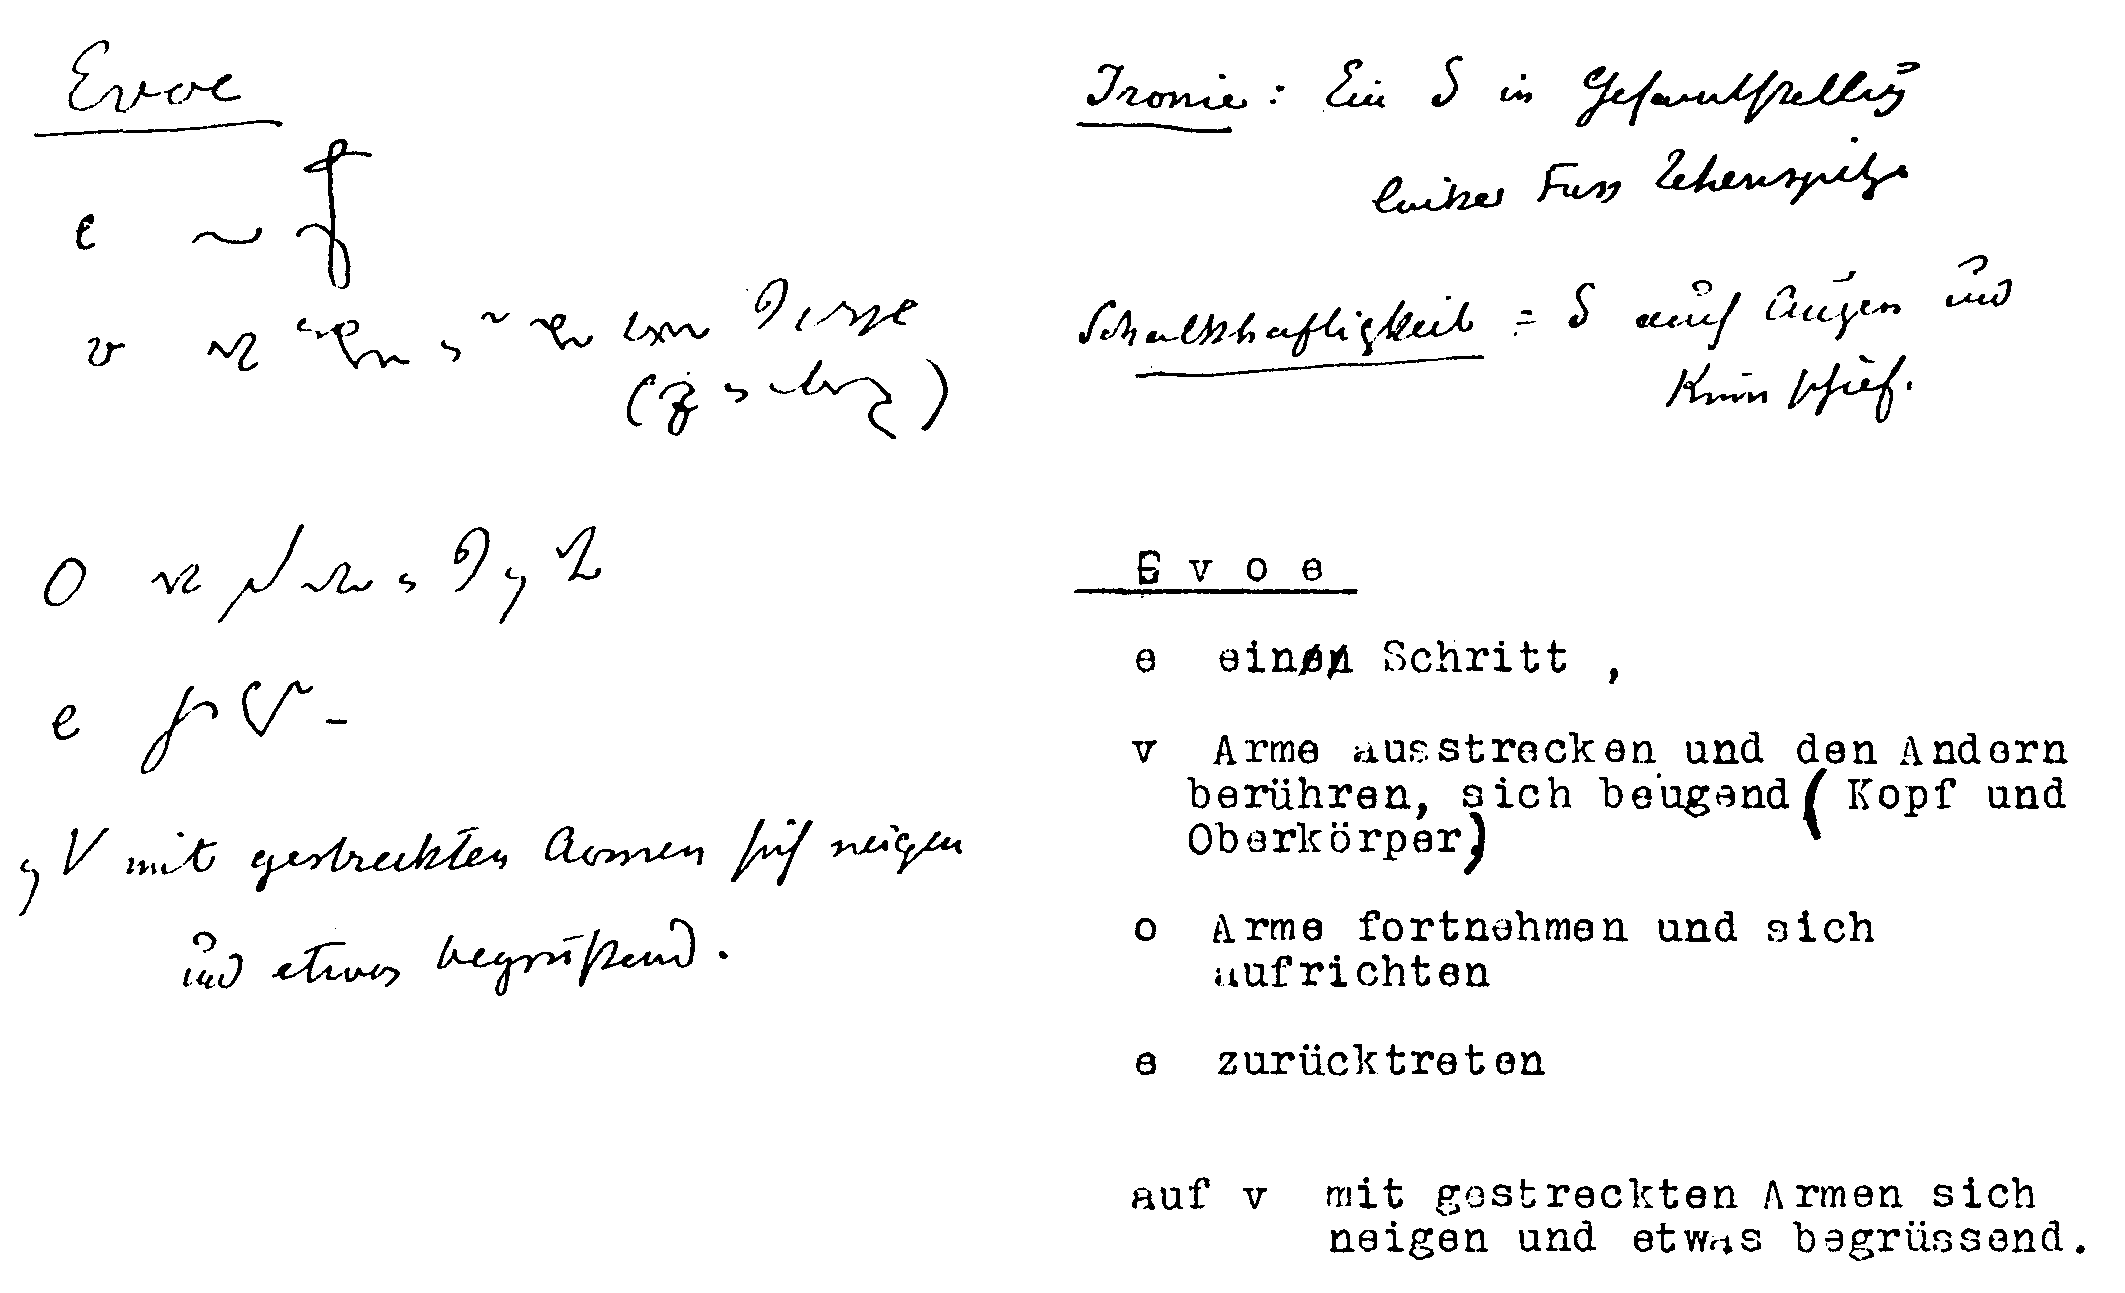 Evoe
e
v
o
e
V mit gestreckten Armen sich neigen
und etwas begrüßend.
Ironie: Ein S in Gesamtstellung
linker Fuss Zehenspitze
Schalkhaftigkeit = S auch Augen und
Kinn schief.
Evoe
e einen Schritt ,
v Arme ausstrecken und den Andern
berühren, sich beugend ( Kopf und
Oberkörper)
o Arme fortnehmen und sich
aufrichten
e zurücktreten
auf v mit gestreckten Armen sich
neigen und etwas begrüssend.